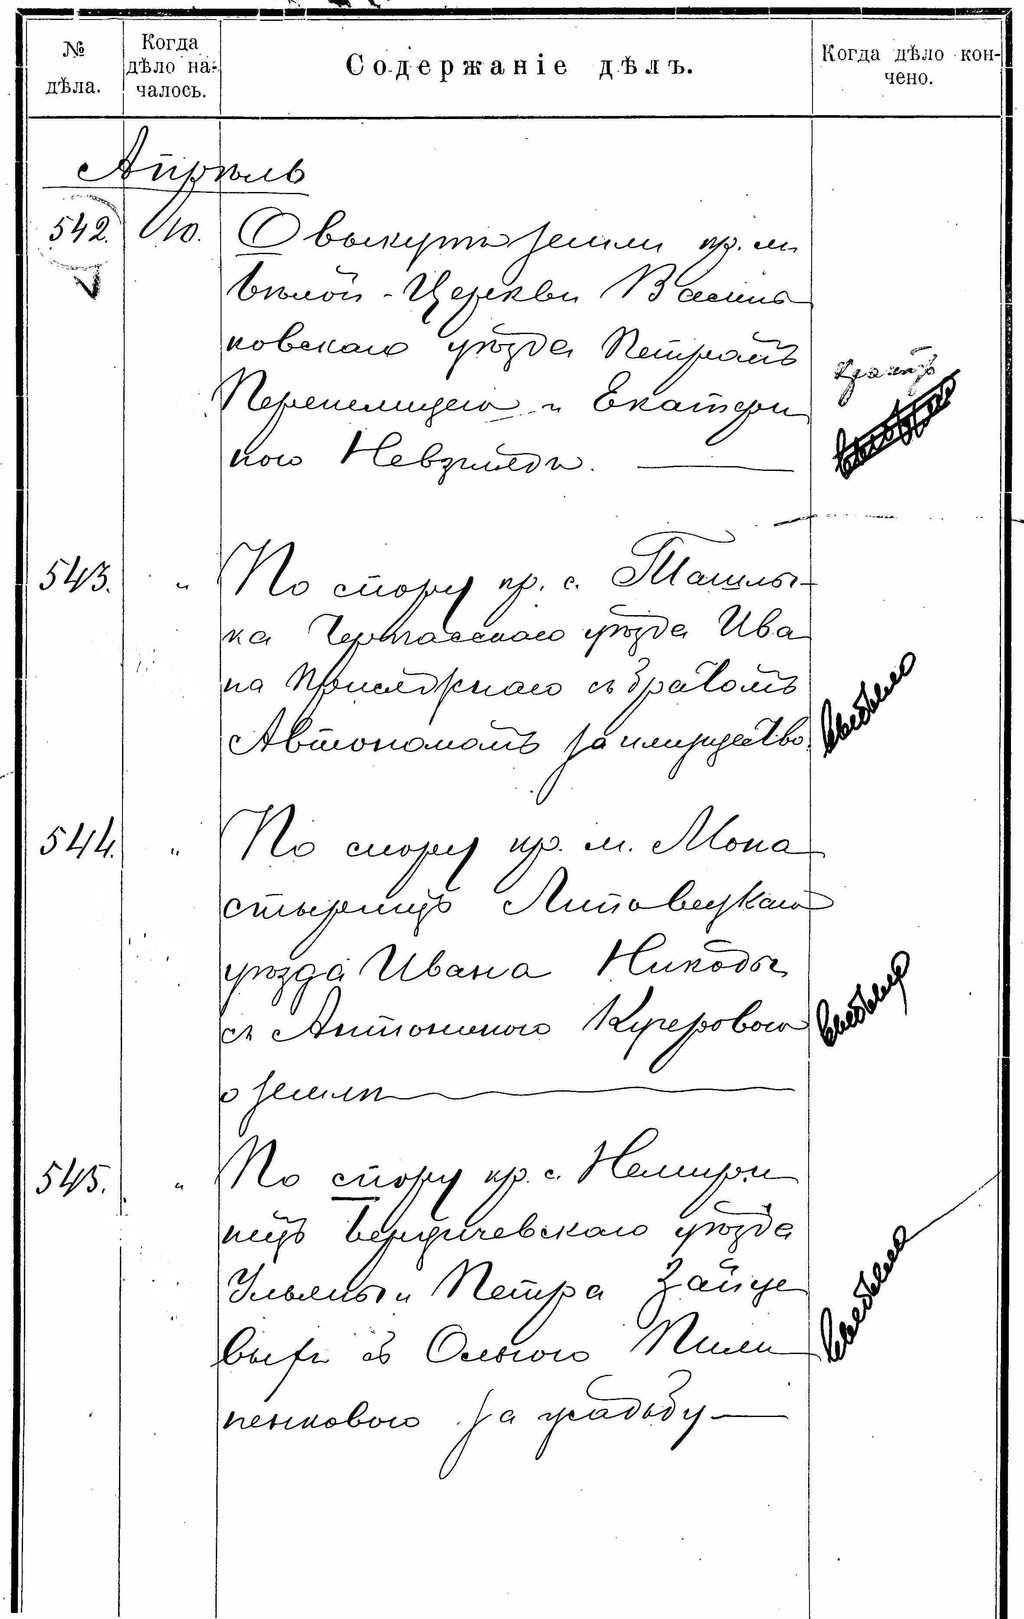 № дѣла.
Когда дѣло на-
чалось.
Содержаніе дѣлъ.
Когда дѣло кон-
чено.
Апрѣль
542. 10. О выкупѣ земли кр. м.
Бѣлой-Церкви Василь
ковскаго уѣзда Петромъ
Перепелицею и Екатери
ною Невзглядъ.
543. " По спору кр. с. Ташлы-
ка Черкасскаго уѣзда Ива
на съ братомъ
Автономомъ за имущество
выбыло
544. " По спору кр. м. Мона
стырищъ Липовецкаго
уѣзда Ивана Никоды
съ Антониною Кучеровою
о землѣ
выбыло
545. " По спору кр. с. Немири
нецъ Бердичевскаго уѣзда
Ульяны и Петра Зайце
выхъ съ Ольгою Пили
пенковою за усадьбу
выбыло